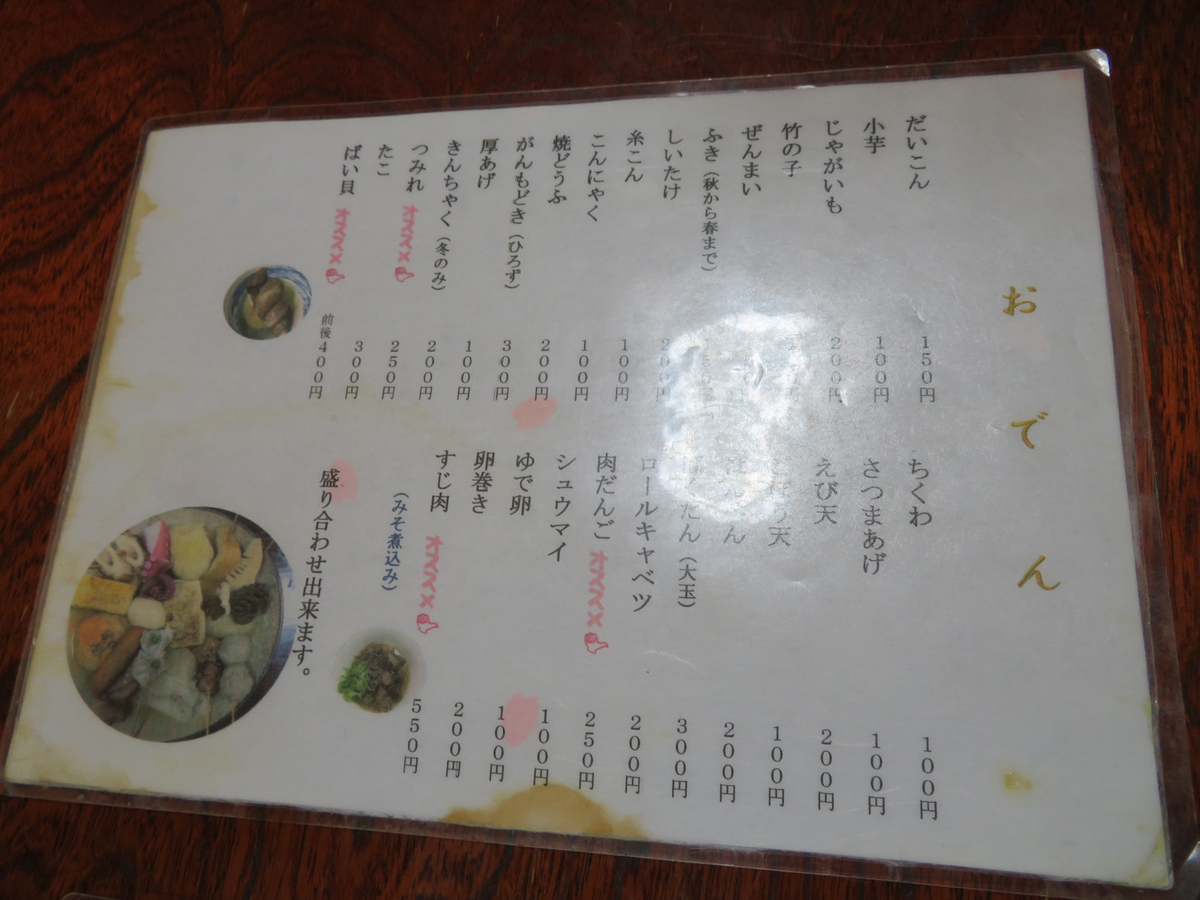 おでん
だいこん 150円
小芋 100円
じゃがいも 200円
竹の子
ぜんまい
ふき（秋から春まで）
しいたけ
糸こん 100円
こんにゃく 100円
焼どうふ 200円
がんもどき（ひろず） 300円
厚あげ 100円
きんちゃく（冬のみ） 200円
つみれ オススメ 250円
たこ 300円
ばい貝 オススメ 前後400円
ちくわ 100円
さつまあげ 100円
えび天 200円
天 100円
200円
（大玉） 300円
ロールキャベツ 200円
肉だんご オススメ 250円
シュウマイ 100円
ゆで卵 100円
卵巻き 200円
すじ肉 オススメ 550円
（みそ煮込み）
盛り合わせ出来ます。